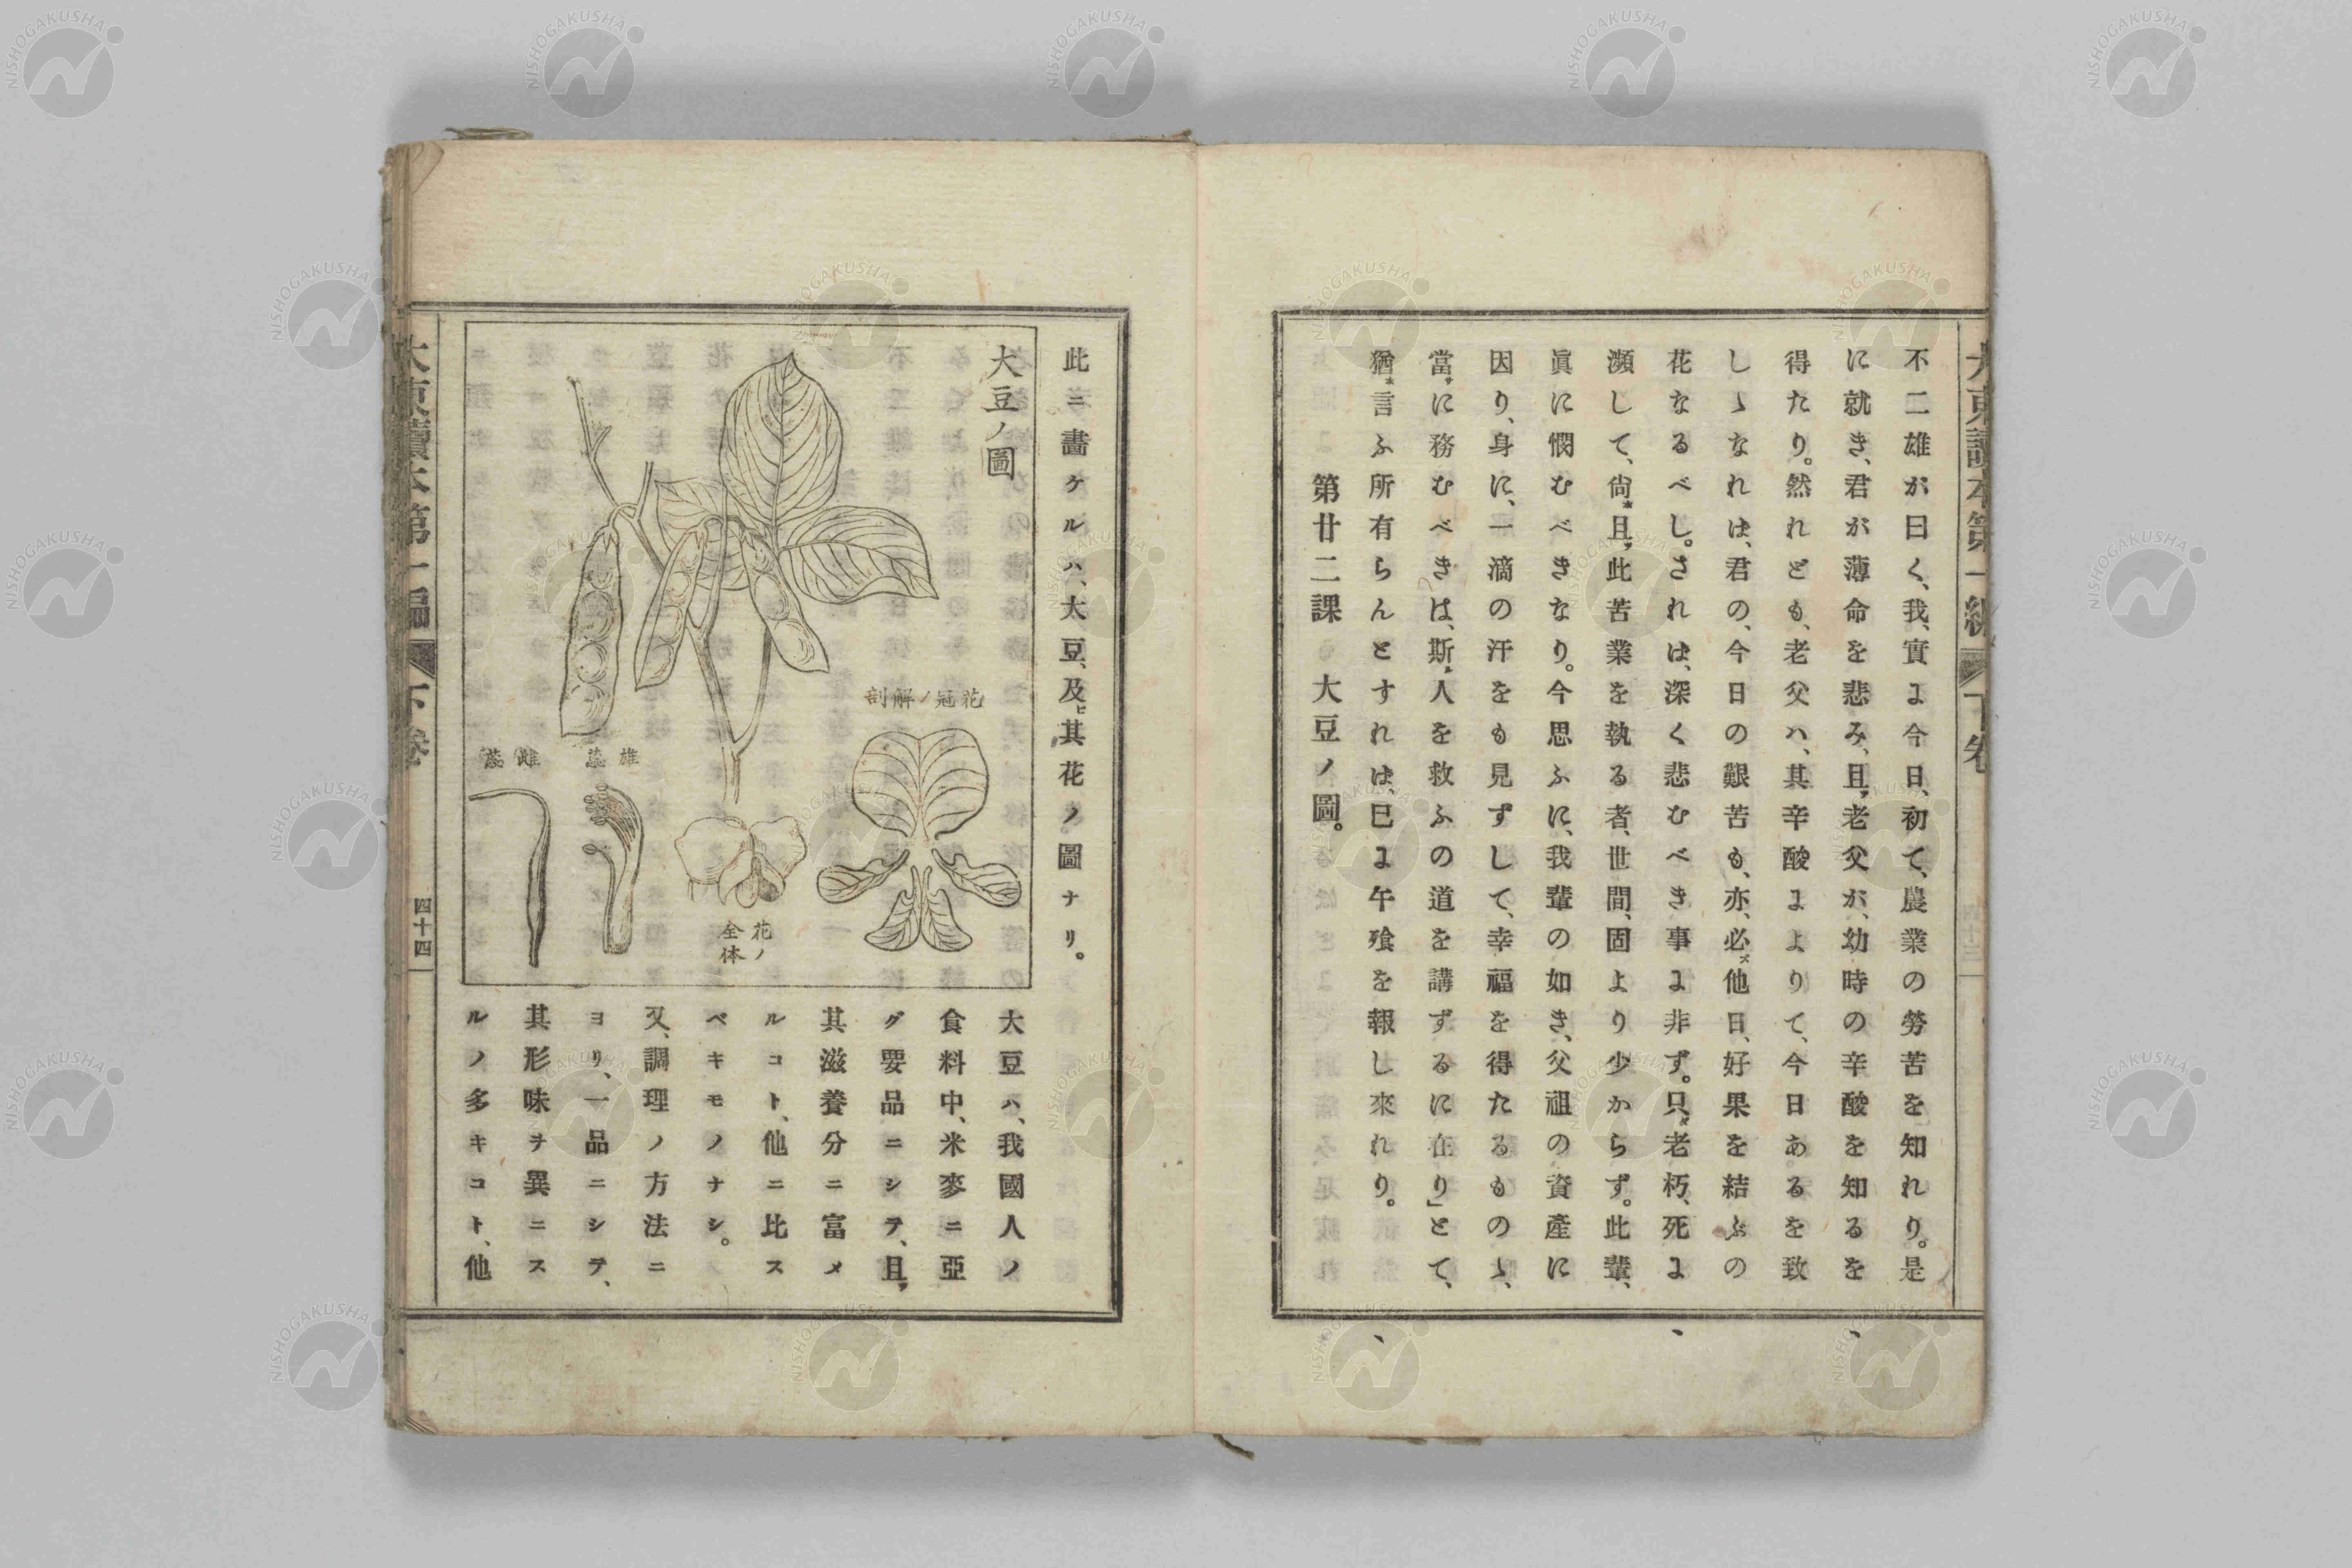 不二雄が曰く、我、實よ今日、初て、農業の勞苦を知れり。是
に就き、君が薄命を悲み、且、老父が、幼時の辛酸を知るを
得たり。然れども、老父ハ、其辛酸よよりて、今日あるを致
しゝなれは、君の、今日の艱苦も、亦、必ズ他日、好果を結ぶの
花なるべし。されは、深く悲むべき事よ非ず。只、老朽、死よ
瀕して、尙、且、此苦業を執る者、世間、固より少からず。此輩、
眞に憫むべきなり。今思ふに、我輩の如き、父祖の資産に
因り、身に、一滴の汗をも見ずして、幸福を得たるものゝ、
當に務むべきは、斯人を救ふの道を講ずるに在り」とて、
猶言ふ所有らんとすれは、巳よ午飱を報し來れり。
第廿二課　大豆ノ圖。
此ニ畵ケルハ、大豆、及ヒ其花ノ圖ナリ。
大豆ノ圖
花冠ノ解剖
雄蕊
雌蕊
花ノ
全体
大豆ハ、我國人ノ
食料中、米麥ニ亞
グ要品ニシテ、且、
其滋養分ニ富メ
ルコト、他ニ比ス
ベキモノナシ。
又、調理ノ方法ニ
ヨリ、一品ニシテ、
其形味ヲ異ニス
ルノ多キコト、他
下卷
四十四
NISHOGAKUSHA